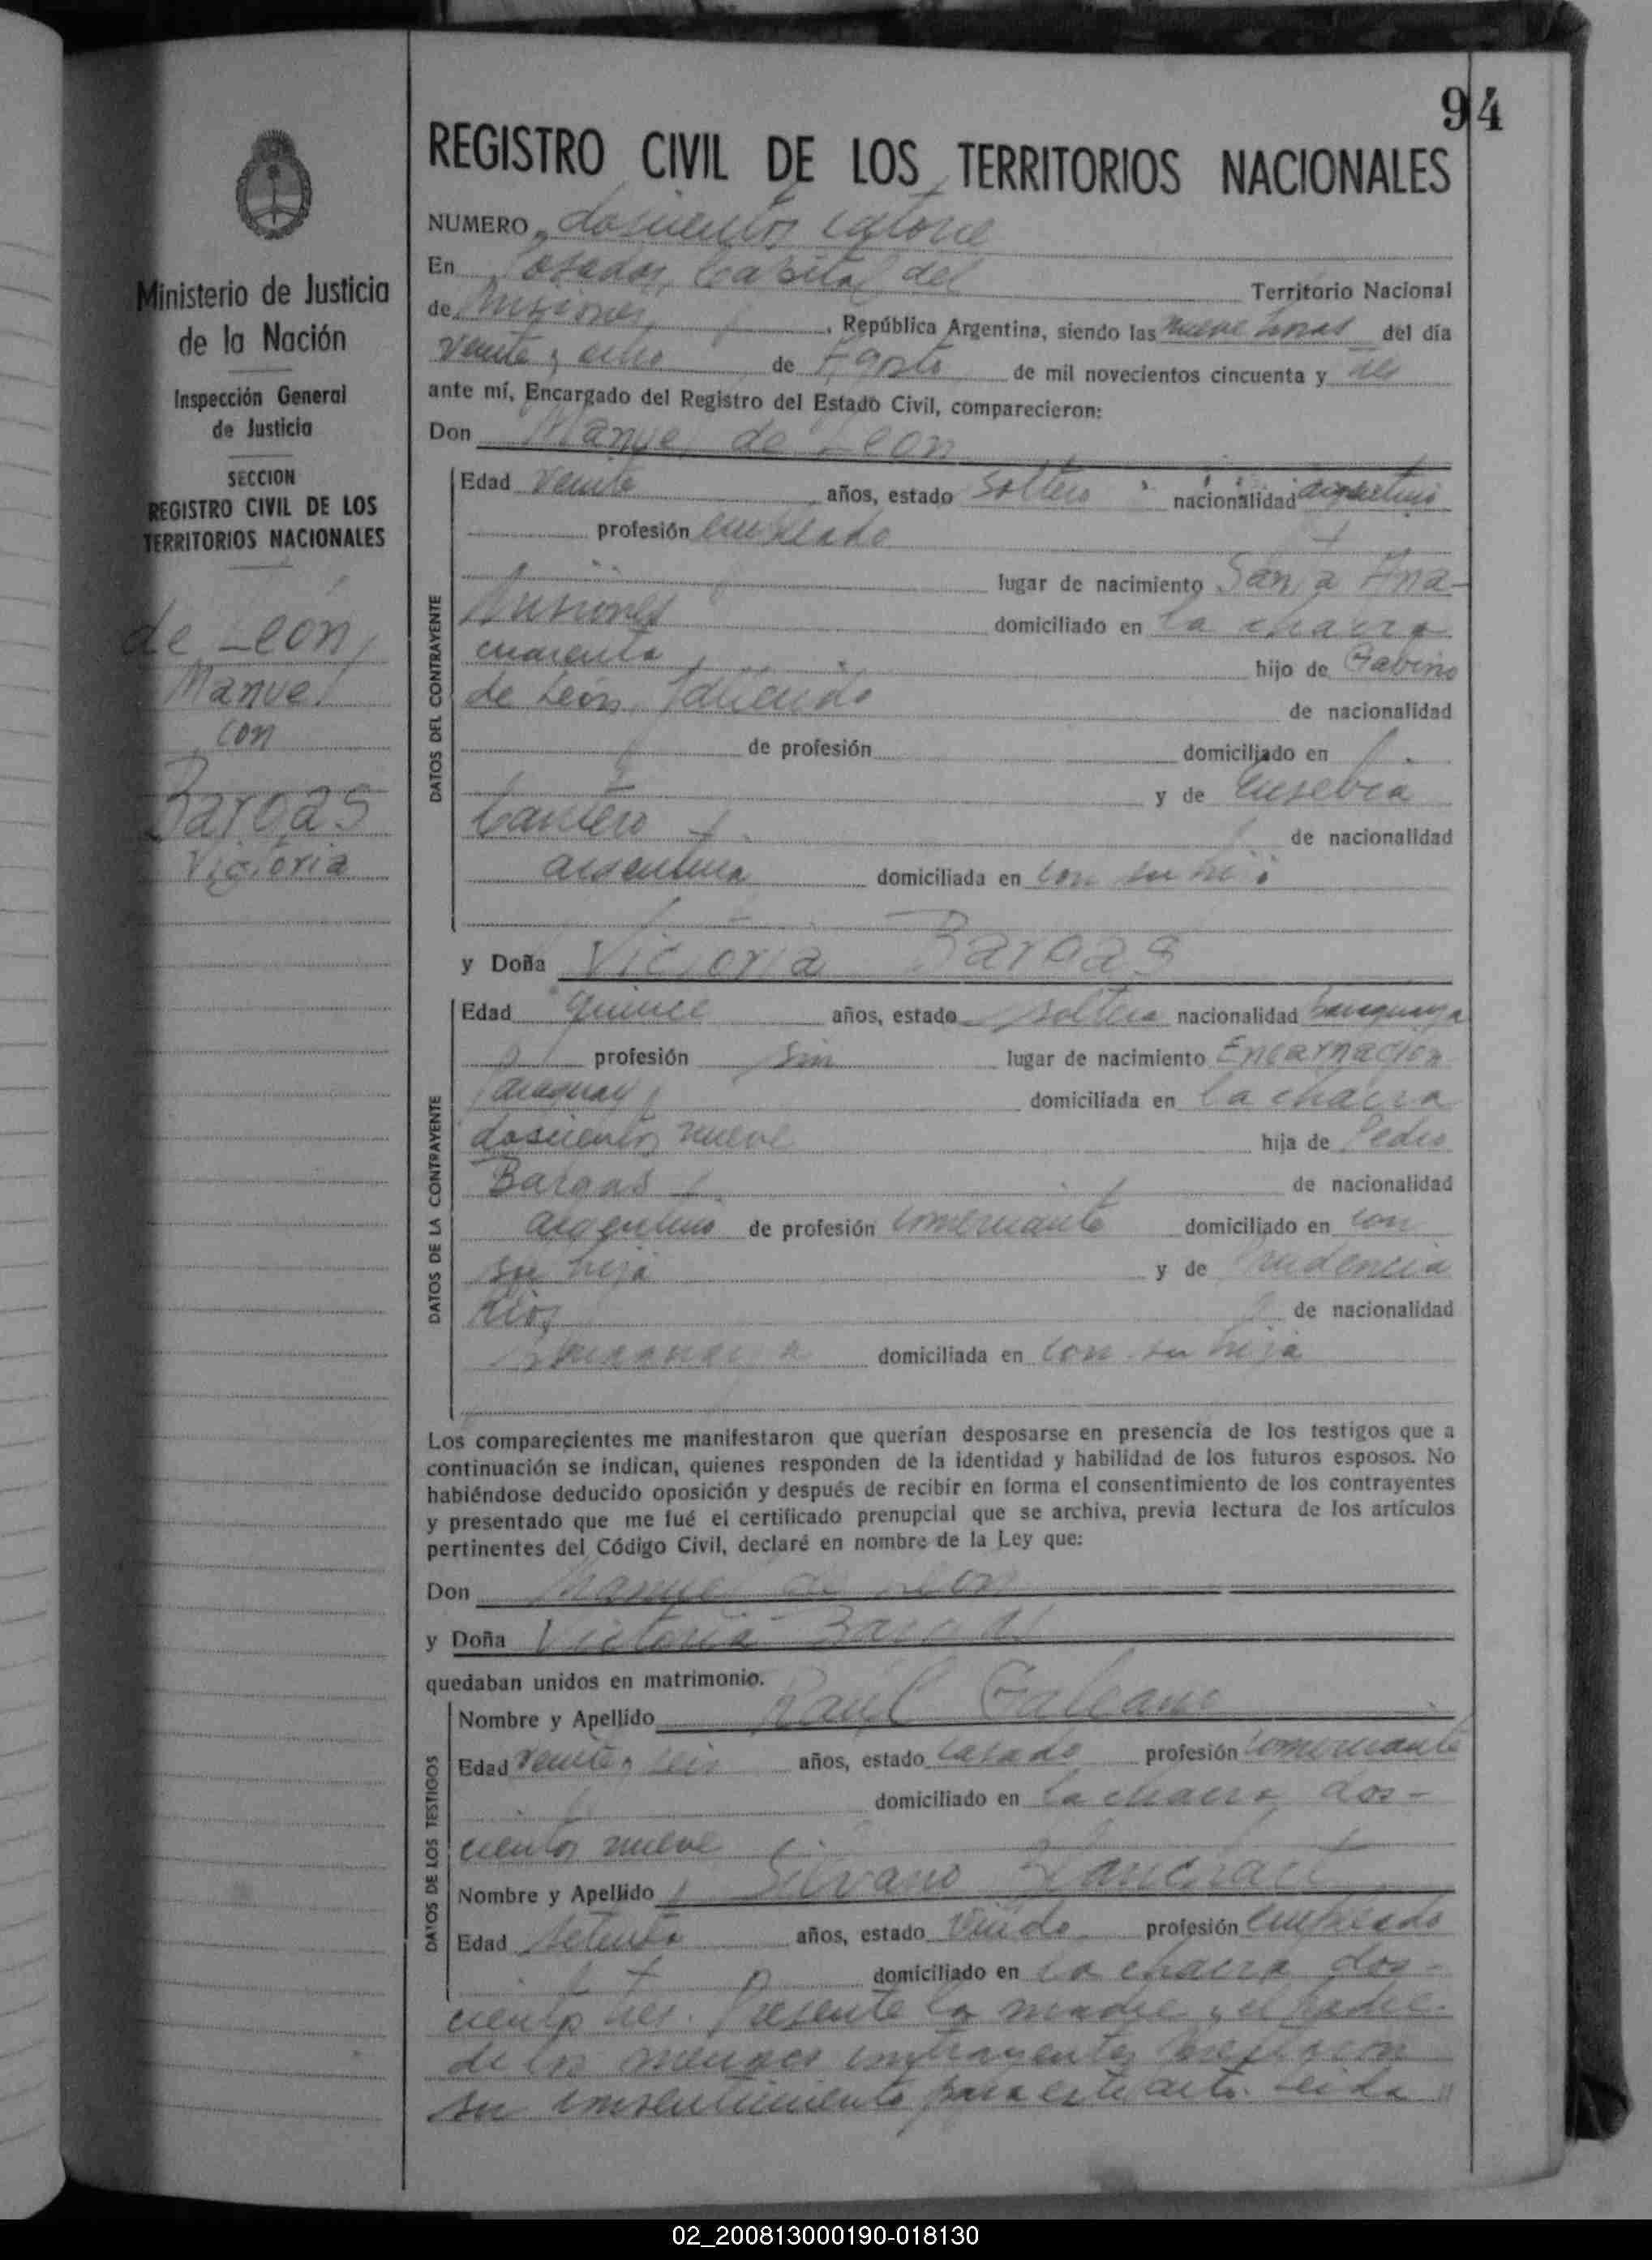 94
REGISTRO CIVIL DE LOS TERRITORIOS NACIONALES
NUMERO doscientos catorce
En Posadas, Capital del Territorio Nacional
de Misiones, República Argentina, siendo las nueve horas del día
veinte y ocho de Agosto de mil novecientos cincuenta y tres
ante mí, Encargado del Registro del Estado Civil, comparecieron:
Don Manuel de Leon
DATOS DEL CONTRAYENTE
Edad veinte años, estado soltero nacionalidad argentino
profesión empleado
lugar de nacimiento Santa Ana-
Misiones domiciliado en la chacra
cuarenta hijo de Gabino
de León, de nacionalidad
de profesión domiciliado en
y de Eusebia
Cantero de nacionalidad
argentina domiciliada en con su hijo
y Doña Victoria Bargas
DATOS DE LA CONTRAYENTE
Edad quince años, estado soltera nacionalidad paraguaya
profesión sin lugar de nacimiento Encarnación
Paraguay domiciliada en la chacra
doscientos nueve hija de Pedro
Bargas de nacionalidad
argentino de profesión comerciante domiciliado en con
su hija y de Prudencia
Rios de nacionalidad
paraguaya domiciliada en con su hija
Los comparecientes me manifestaron que querían desposarse en presencia de los testigos que a
continuación se indican, quienes responden de la identidad y habilidad de los futuros esposos. No
habiéndose deducido oposición y después de recibir en forma el consentimiento de los contrayentes
y presentado que me fué el certificado prenupcial que se archiva, previa lectura de los artículos
pertinentes del Código Civil, declaré en nombre de la Ley que:
Don Manuel de Leon
y Doña Victoria Bargas
quedaban unidos en matrimonio.
DATOS DE LOS TESTIGOS
Nombre y Apellido Raúl Galeano
Edad veinte y seis años, estado casado profesión comerciante
domiciliado en la chacra dos-
cientos nueve
Nombre y Apellido Silvano
Edad setenta años, estado viudo profesión empleado
domiciliado en la chacra dos-
cientos tres. Presente la madre y el padre
de los menores contrayentes prestaron
su consentimiento para este acto. Leida
Ministerio de Justicia
de la Nación
Inspección General
de Justicia
SECCION
REGISTRO CIVIL DE LOS
TERRITORIOS NACIONALES
de León,
Manuel
con
Bargas
Victoria
02_200813000190-018130